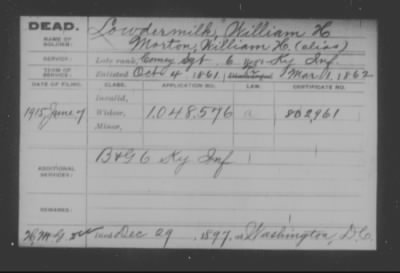 DEAD.
NAME OF SOLDIER:
Lowdermilk, William H.
Morton, William H. (alias)
SERVICE:
Late rank, Comsy Sgt. 6 Ky Inf.
TERM OF SERVICE:
Enlisted Oct 4 1861, Mar 1 1862
DATE OF FILING. CLASS. APPLICATION NO. LAW. CERTIFICATE NO.
Invalid,
1915 June 7 Widow, 1.048.576 a 802,961
Minor,
ADDITIONAL SERVICES:
B & G 6 Ky Inf
REMARKS:
Died Dec 29, 1897, at Washington, D.C.